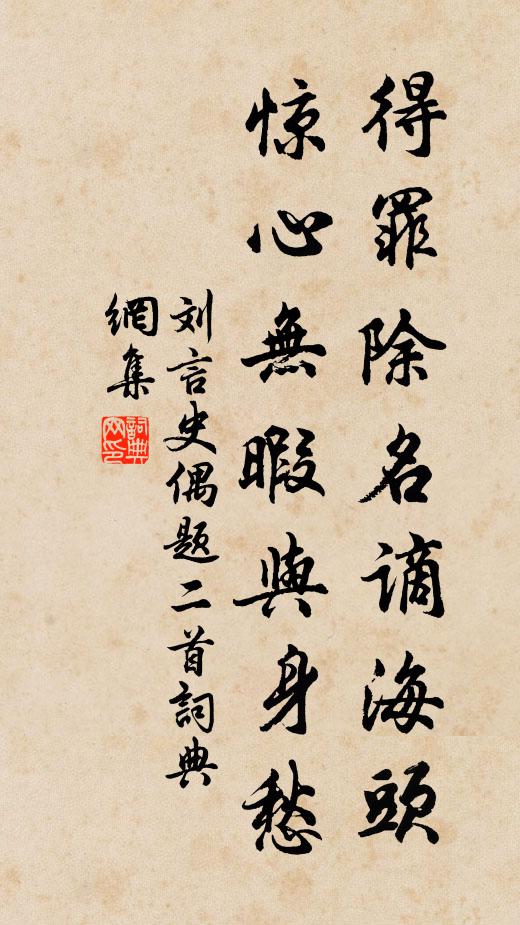 得罪除名謫海頭
惊心無暇與身愁
刘言史偶题二首詞典
網集
詞典
网印